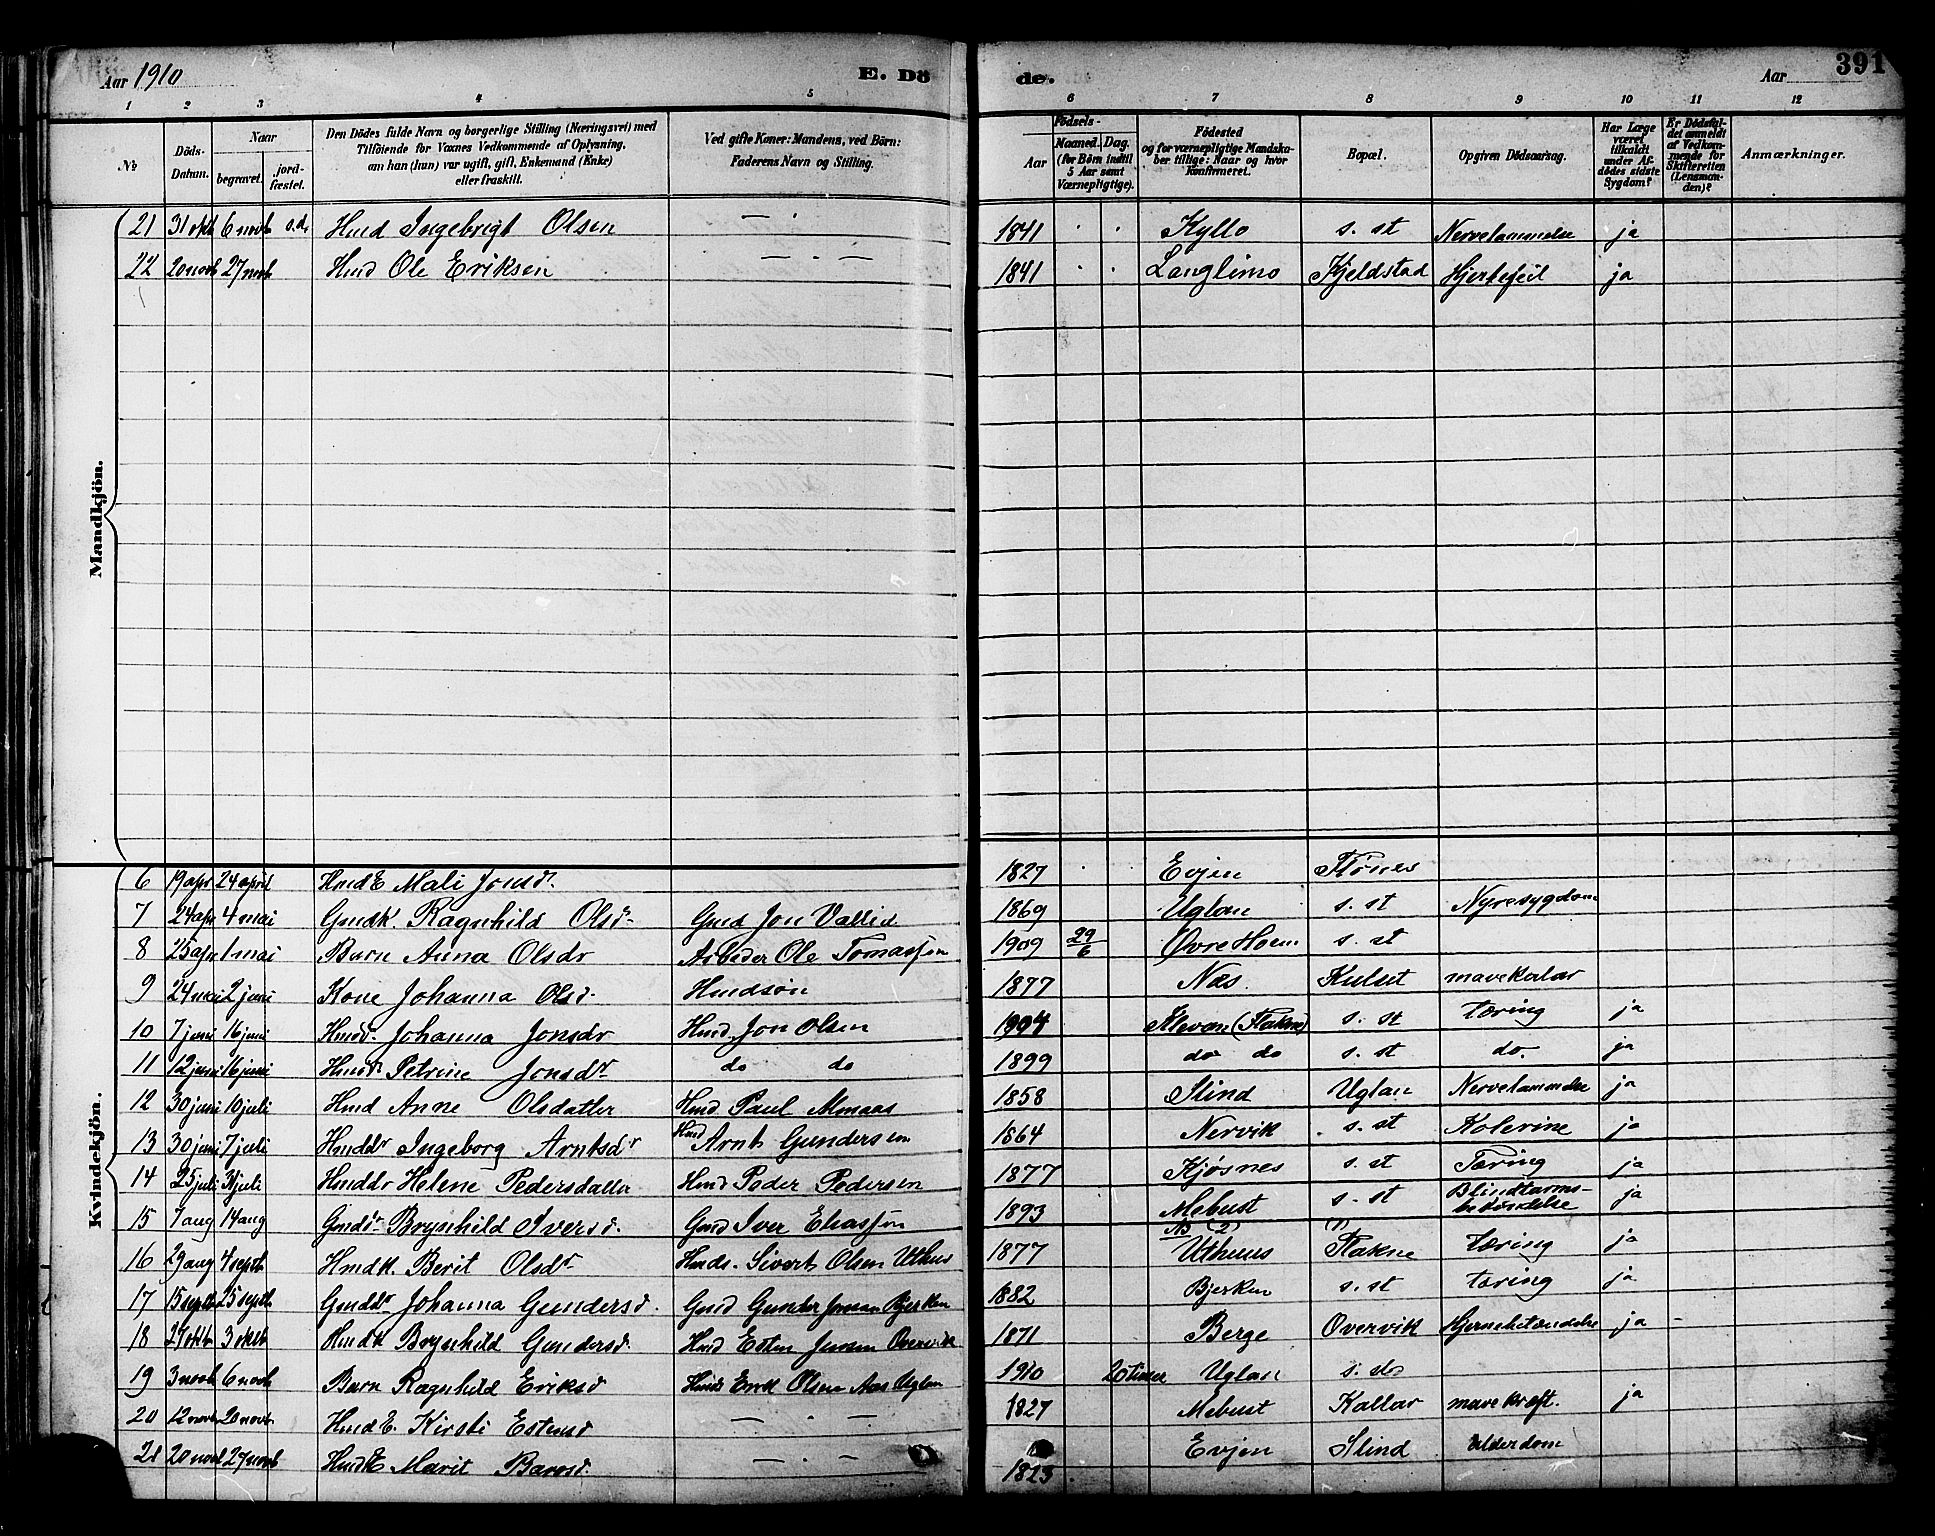 Aar 1910 E. Dö de. Aar 391
1 2 3 4 5 6 7 8 9 10 11 12
No Döds-Datum. Naar begravet. jord-fæstet. Den Dödes fulde Navn og borgerlige Stilling (Næringsvei) med Tilföiende for Voxnes Vedkommende af Oplysning, om han (hun) var ugift, gift, Enkemand (Enke) eller fraskilt. Ved gifte Koner: Mandens, ved Börn: Faderens Navn og Stilling. Födsels- Aar Maaned. Dag. (for Börn indtil 5 Aar samt Værnepligtige). Födested og for værnepligtige Mandskaber tillige: Naar og hvor konfirmeret. Bopæl. Opgiven Dödsaarsag. Har Læge været tilkaldt under Afdödes sidste Sygdom? Er Dödsfaldet anmeldt af Vedkommende for Skifteretten (Lensmanden)? Anmærkninger.
Mandkjön.
21 31 okt 6 novb s.d. Hmd Ingebrigt Olsen — · 1841 · · Kyllo s. st Nervelammelse ja
22 20 novb 27 novb Hmd Ole Eriksen — · — 1841 · · Langlimo Kjeldstad Hjertefeil ja
Kvindekjön.
6 19 apr 24 april HmdE Mali Jonsdr. 1827 · · Evjen Flønes
7 24 apr 4 mai Gmdk. Ragnhild Olsdr Gmd Jon Vallid 1869 Uglan s. st Nyresygdom
8 25 apr 1 mai Barn Anna Olsdr Arbeder Ole Tomassen 1909 29/6 Øvre Hoem s. st
9 24 mai 2 juni Kone Johanna Olsd. Hmdsøn 1877 Næs. Kulset mavekatar
10 7 juni 16 juni Hmdr. Johanna Jonsdr Hmd. Jon Olsen 1994 Kleven (Flakne) s. st tæring ja
11 12 juni 16 juni Hmdr Petrine Jonsdr do do 1899 do do s. st do. ja
12 30 juni 10 juli Hmd Anne Olsdatter Hmd. Paul Mmaas 1858 Slind Uglan Nervelammelse ja
13 30 juni 7 juli Hmddr Ingeborg Arntsdr Hmd Arnt Gundersen 1864 Nervik s. st Kolerine ja
14 25 juli 31 juli Hmddr Helene Pedersdatter Hmd Peder Pedersen 1877 Kjøsnes s. st Tæring ja
15 7 aug 14 aug Gmdr Brynhild Iversd. Gmd Iver Eliassen 1893 Mebust s. st Blindtarms-betændelse ja
16 29 aug 4 septb Hmdk. Berit Olsdr Hmds. Sivert Olsen Uthus 1877 NB (2) Uthuus (1) Flakne tæring ja
17 15 septb 25 septb Gmddr Johanna Gundersd. Gmd Gunder Jonsen Bjerken 1882 Bjerken s. st tæring ja
18 27 oktb 3 oktb Hmdk Brynhild Gundersd. Hmd Esten Jensen Overvik 1871 Berge Overvik Hjernebetændelse ja -
19 3 novb 6 novb Barn Ragnhild Eriksd Hmds Erik Olsen Aas Uglan 1910 20 timer Uglan s. do
20 12 novb 20 novb HmdE. Kirsti Estensd — · — · — 1827 Mebust Kallar mavekræft. ja
21 20 novb 27 novb HmdE Marit Barosd. — · — · — 1823 Evjen Slind Alderdom